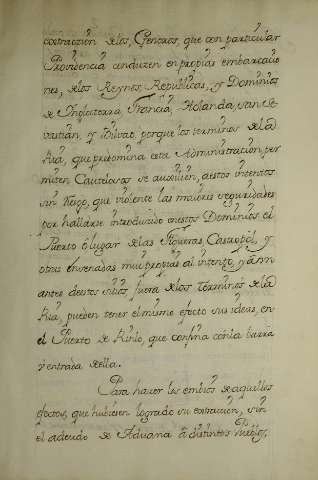 extraccion de los, Generos, que con particular
Providencia conduzen en propias embarcacio
nes, de los Reynos, Republicas, y Dominios
de Inglaterra, Francia, Holanda, San Se
vastian, y Bilvao, porque los terminos de la
Ria, que predomina esta Administracion, per
miten Cautelosos se auxilien, a estos intentos
sin riesgo, que violente las maiores seguridades
por hallarse introducido en estos Dominios el
Puerto ó lugar de las Figueras, Castropol, y
otras ensenadas mui propias al intento, y aun
antes de estos sitios fuera de los terminos de la
Ria, pueden tener el mismo efecto sus ideas, en
el Puerto de Rinlo, que confina con la barra
y entrada de ella.
Para hacer los embios de aquellos
efectos, que hubiesen logrado su extraccion, sin
el adeudo de Aduana á distintos Pueblos,